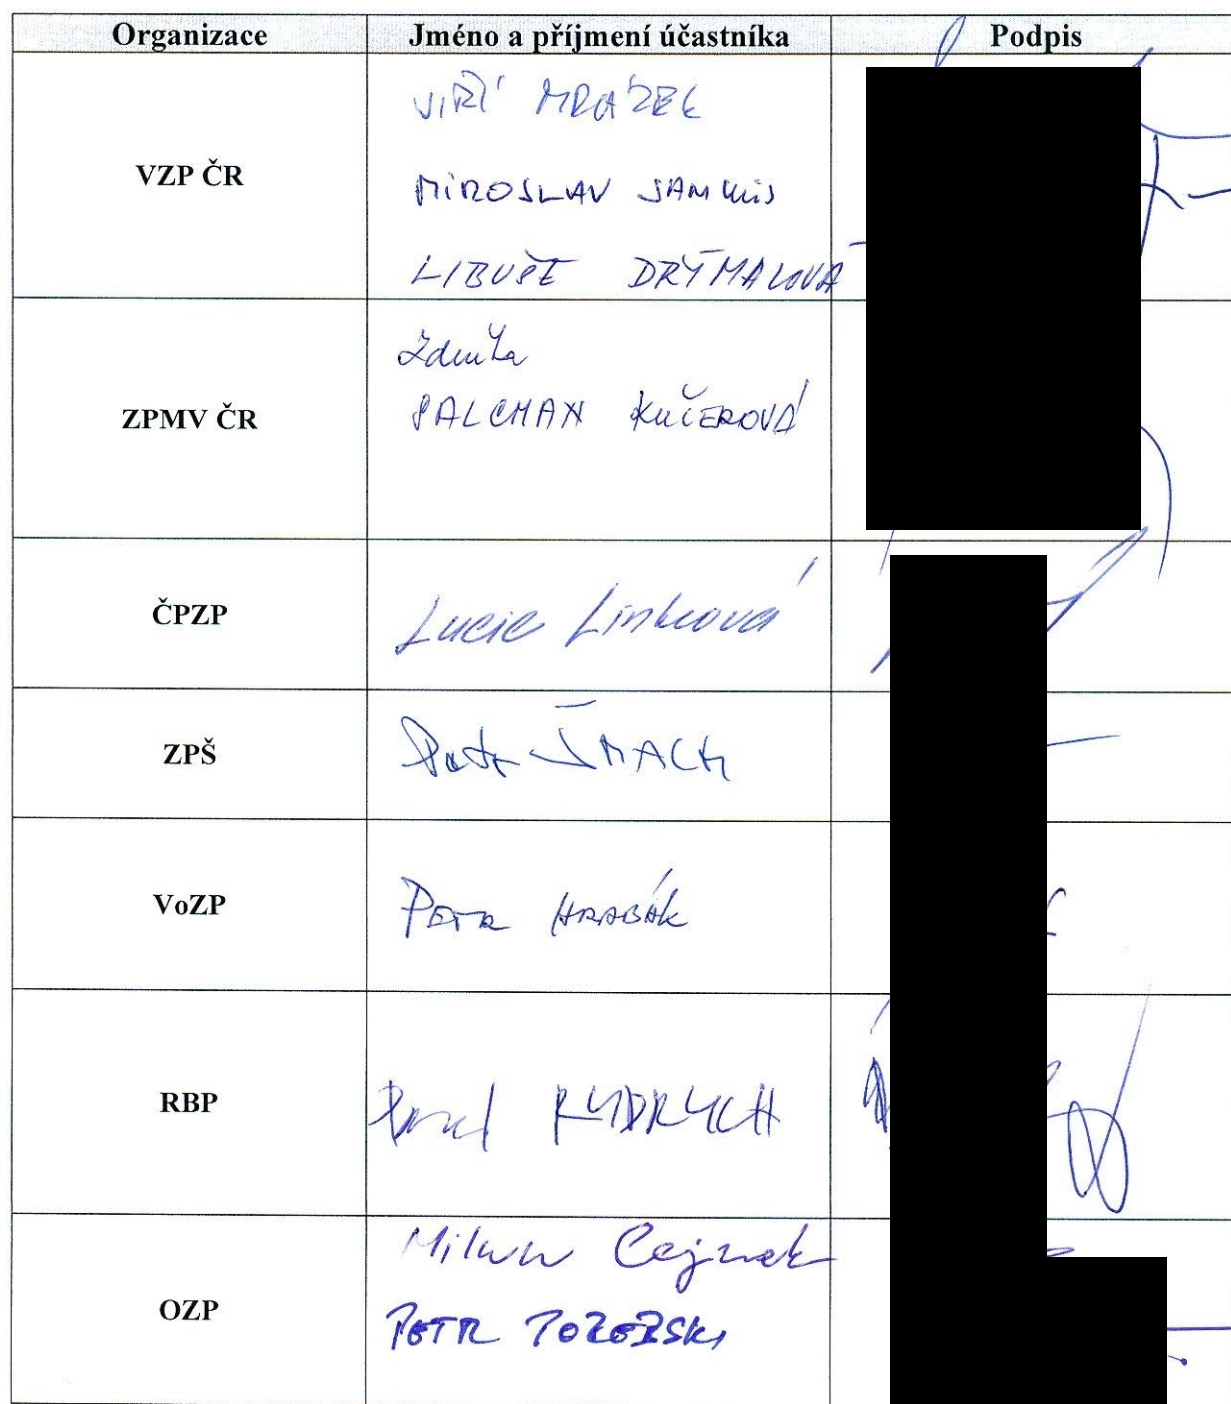 Organizace Jméno a příjmení účastníka Podpis
VZP ČR
JIŘÍ MRÁZEK
MIROSLAV
LIBUŠE DRÝMALOVÁ
ZPMV ČR
Zdeňka
SALCMAN KUČEROVÁ
ČPZP
Lucie Linková
ZPŠ
Petr ŠMACH
VoZP
PETR HRABÁK
RBP
Pavel RYDRYCH
OZP
Milan Cajznek
PETR